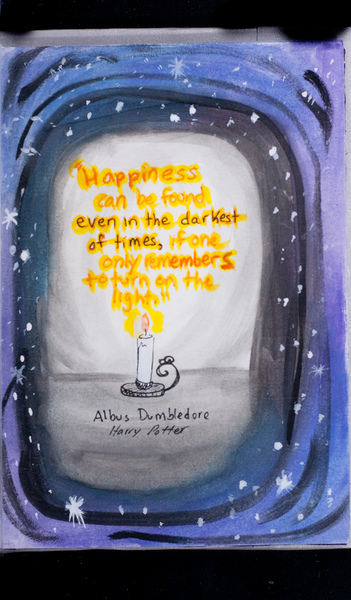 "Happiness
can be found
even in the darkest
of times, if one
only remembers
to turn on the
light."
Albus Dumbledore
Harry Potter